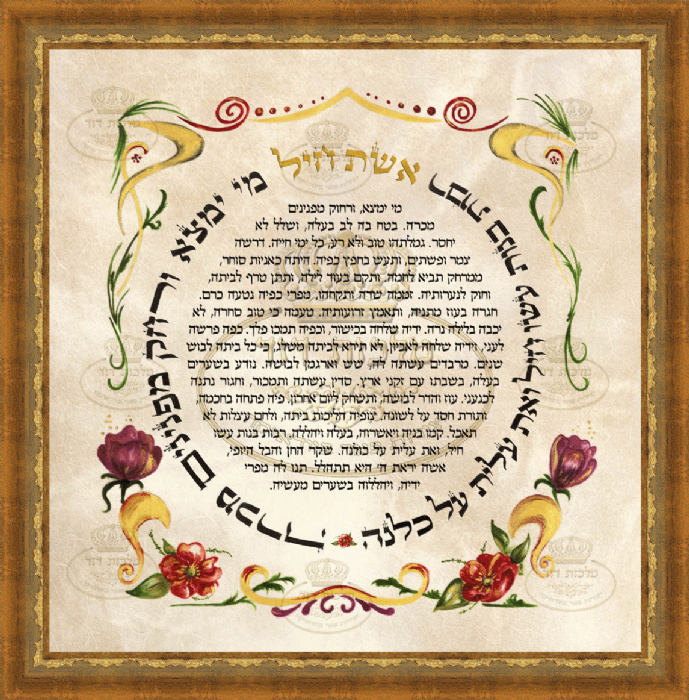 אשת חיל
מי ימצא ורחוק מפנינים מכרה
רבות בנות עשו חיל ואת עלית על כלנה
מי ימצא, ורחוק מפנינים
מכרה. בטח בה לב בעלה, ושלל לא
יחסר. גמלתהו טוב ולא רע, כל ימי חייה. דרשה
צמר ופשתים, ותעש בחפץ כפיה. היתה כאניות סוחר,
ממרחק תביא לחמה. ותקם בעוד לילה, ותתן טרף לביתה,
וחוק לנערותיה. זממה שדה ותקחהו, מפרי כפיה נטעה כרם.
חגרה בעוז מתניה, ותאמץ זרועותיה. טעמה כי טוב סחרה, לא
יכבה בלילה נרה. ידיה שלחה בכישור, וכפיה תמכו פלך. כפה פרשה
לעני, וידיה שלחה לאביון. לא תירא לביתה משלג, כי כל ביתה לבוש
שנים. מרבדים עשתה לה, שש וארגמן לבושה. נודע בשערים
בעלה, בשבתו עם זקני ארץ. סדין עשתה ותמכור, וחגור נתנה
לכנעני. עוז והדר לבושה, ותשחק ליום אחרון. פיה פתחה בחכמה,
ותורת חסד על לשונה. צופיה הליכות ביתה, ולחם עיצלות לא
תאכל. קמו בניה ויאשרוה, בעלה ויהללה. רבות בנות עשו
חיל, ואת עלית על כולנה. שקר החן והבל היופי,
אשה יראת ה' היא תתהלל. תנו לה מפרי
ידיה, ויהללוה בשערים מעשיה.
מלכות דוד